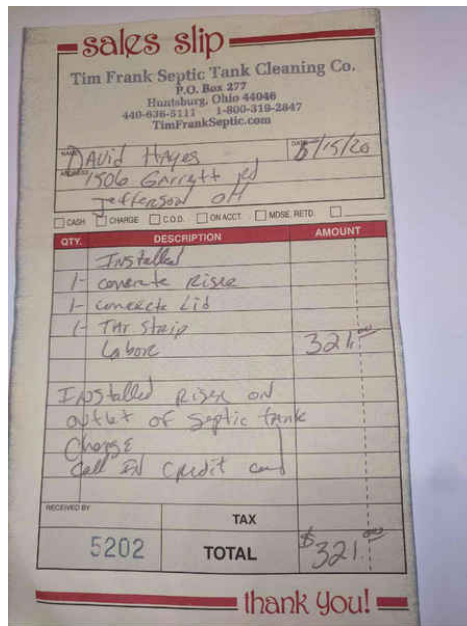 sales slip
Tim Frank Septic Tank Cleaning Co.
P.O. Box 277
Huntsburg, Ohio 44046
440-636-5111 1-800-319-2847
TimFrankSeptic.com
NAME David Hayes DATE 5/15/20
ADDRESS 1506 Garrett rd
Jefferson OH
CASH CHARGE C.O.D. ON ACCT. MDSE. RETD.
QTY. DESCRIPTION AMOUNT
Installed
1- concrete Riser
1- concrete Lid
1- Tar Strip
Labore 321.00
Installed Riser on
outlet of Septic tank
Charge
Call IN Credit card
RECEIVED BY
TAX
5202 TOTAL $321.00
thank you!